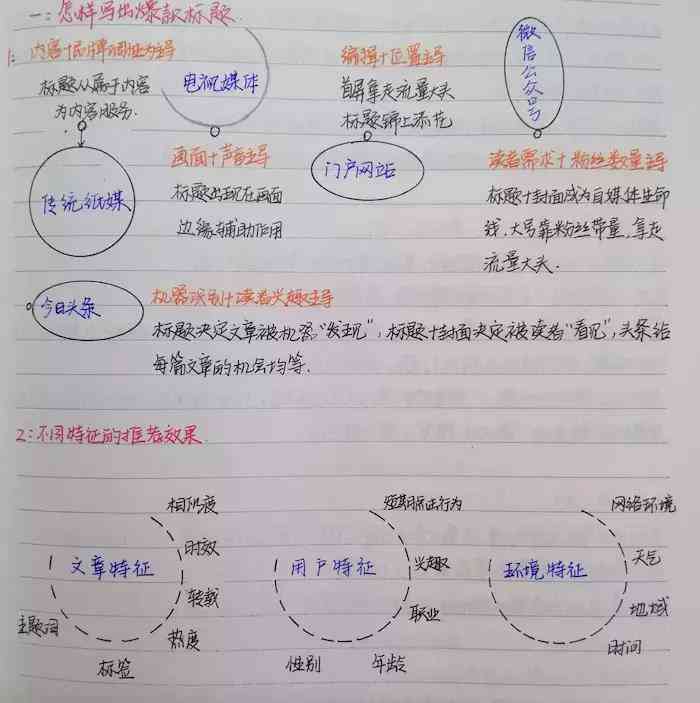 一:怎样写出爆款标题
1:
内容+品牌调性为主导
标题从属于内容
为内容服务.
传统纸媒
电视媒体
画面+声音主导
标题出现在画面
边缘辅助作用
编辑+位置主导
首屏拿走流量大头
标题锦上添花
门户网站
微信公众号
读者需求+粉丝数量主导
标题+封面成为自媒体生命
线,大号靠粉丝带量,拿走
流量大头.
今日头条
机器识别+读者兴趣主导
标题决定文章被机器“发现”,标题+封面决定被读者“看见”,头条给
每篇文章的机会均等.
2:不同特征的推荐效果
文章特征
相似度
时效
转载
热度
标签
主题词
用户特征
短期点击行为
兴趣
职业
年龄
性别
环境特征
网络环境
天气
地域
时间